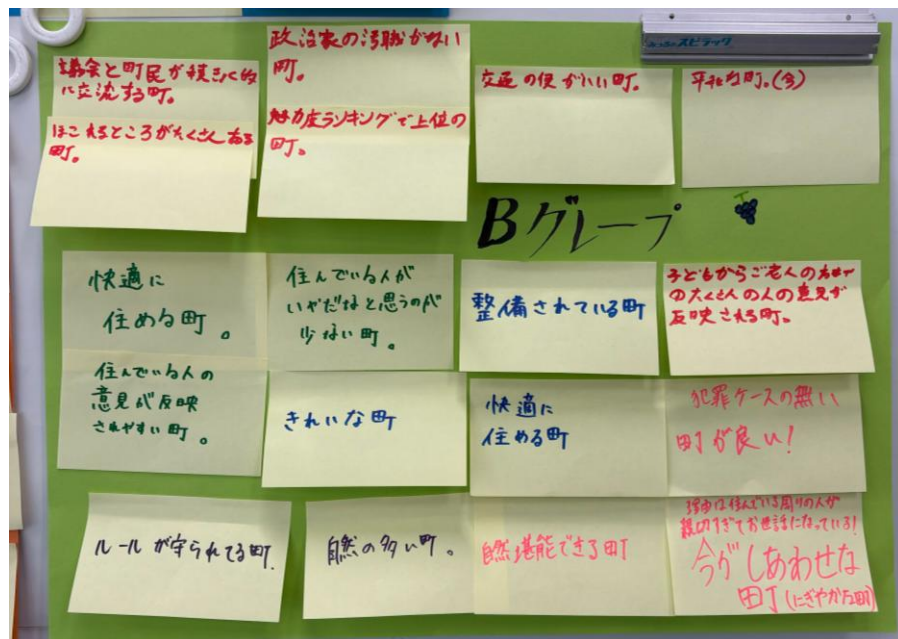 議会と町民が積きょく的
に交流する町。
ほこれるところがたくさんある
町。
政治家の汚職がない
町。
魅力度ランキングで上位の
町。
交通の便がいい町。
平和な町。(今)
スピラック
Bグループ
快適に
住める町。
住んでいる人が
いやだなと思うのが
少ない町。
整備されている町
子どもからご老人の方まで
のたくさんの人の意見が
反映される町。
住んでいる人の
意見が反映
されやすい町。
きれいな町
快適に
住める町
犯罪ケースの無い
町が良い!
ルールが守られてる町.
自然の多い町。
自然堪能できる町
理由は住んでいる周りの人が
親切すぎてお世話になっている!
今がしあわせな
町(にぎやかな町)